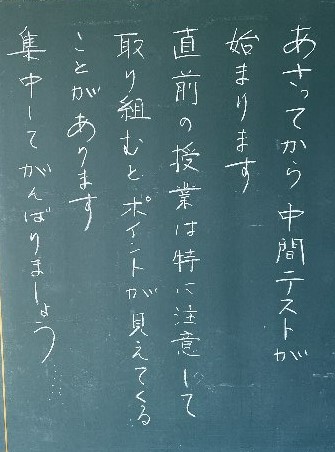 あさってから中間テストが
始まります
直前の授業は特に注意して
取り組むとポイントが見えてくる
ことがあります
集中してがんばりましょう